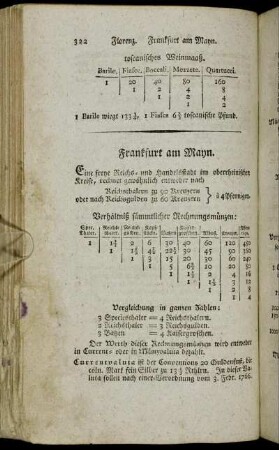 322 Florenz. Frankfurt am Mayn.
toscanisches Weinmaaß.
Barile, Fiasci, Boccali, Mezzette, Quartucci.
1 20 40 80 160
1 2 4 8
1 2 4
1 2
1 Barile wiegt 133⅓, 1 Fiasco 6⅔ toscanische Pfund.
Frankfurt am Mayn.
Eine freye Reichs- und Handelsstadt im oberrheinischen
Kreise, rechnet gewöhnlich entweder nach
Reichsthalern zu 90 Kreuzern
oder nach Reichsgulden zu 60 Kreuzern
à 4 Pfennigen.
Verhältniß sämmtlicher Rechnungsmünzen:
1 1⅓ 2 6 30 40 60 120
1 1½ 4½ 22½ 30 45 90
1 3 15 20 30 60
1 5 6⅔ 10 20
1 1⅓ 2 4
1 1½ 3
1 2
1
Vergleichung in ganzen Zahlen:
3 Speciesthaler = 4 Reichsthalern.
2 Reichsthaler = 3 Reichsgulden.
3 Batzen = 4 Kaisergroschen.
Der Werth dieser Rechnungsmünzen wird entweder
in Current- oder in Münzvaluta bezahlt.
Currentvaluta ist der Conventions 20 Guldenfuß, die
cöln. Mark fein Silber zu 13⅓ Rthlrn. In dieser Va-
luta sollen nach einer Verordnung vom 3. Febr. 1766.